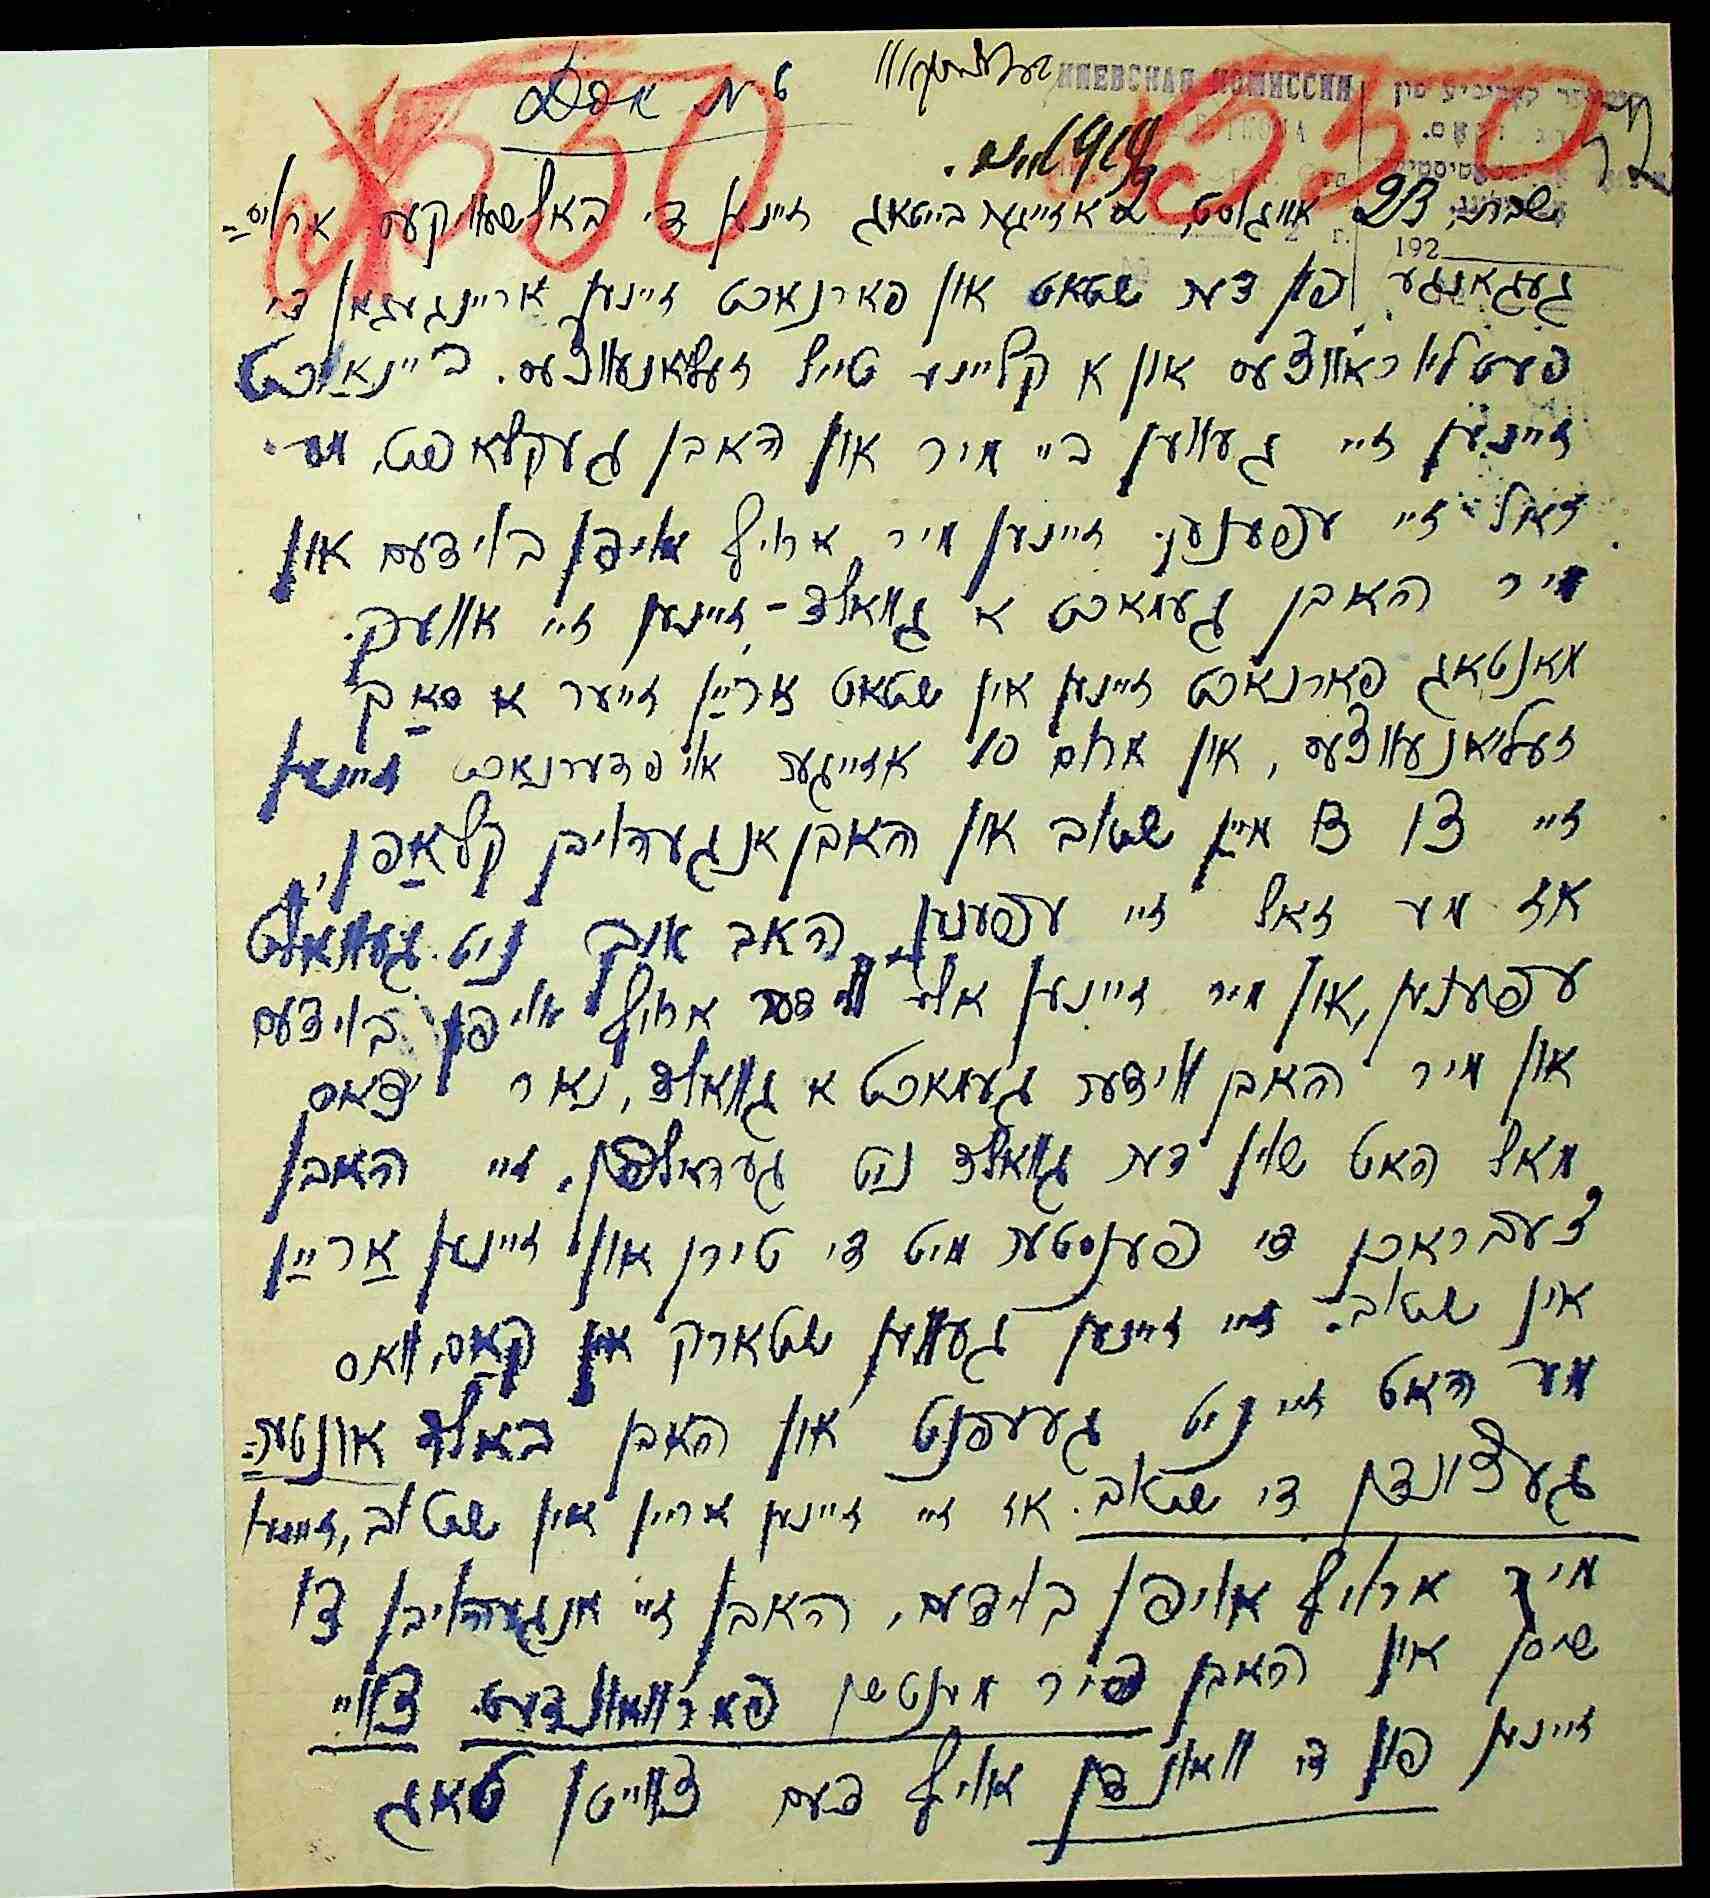 DOK N 6
530
530
КИЕВСКАЯ КОМИССИЯ
192
1919
שבת, 23 אויגוסט, 2 אזייגער בייטאג זיינען די באלשעוויקעס ארויס־
געגאנגען פון דער שטאט און פארנאכט זיינען אריינגעגאן די
פעטליוראווצעס און א קליינער טייל זעליאנעווצעס. ביינאכט
זיינען זיי געווען ביי מיר און האבן געקלאפט, מע
זאל זיי עפענען. זיינען מיר ארויף אויפן בוידעם און
מיר האבן געמאכט א גוואלד - זיינען זיי אוועק.
מאנטאג פארנאכט זיינען אין שטאט אריין זייער א סאך
זעליאנעווצעס, און ארום 10 אזייגער אויפדערנאכט זיינען
זיי צו צו מיין שטוב און האבן אנגעהויבן קלאפן,
אז מע זאל זיי עפענען. האב איך ניט געוואלט
עפענען, און מיר זיינען אלע ווידער ארויף אויפן בוידעם
און מיר האבן ווידער געמאכט א גוואלד, נאר דאס
מאל האט שוין דער גוואלד ניט געהאלפן. זיי האבן
צעבראכן די פענסטער מיט די טירן און זיינען אריין
אין שטוב. זיי זיינען געווען שטארק אין קאס, וואס
מע האט זיי ניט געעפנט און האבן באלד אונטער־
געצונדן די שטוב. אז זיי זיינען אריין אין שטוב, זיינען
מיר ארויף אויפן בוידעם, האבן זיי אנגעהויבן צו
שיסן און האבן פיר מענטשן פארוואונדעט. צוויי
זיינען פון די וואונדן אויף דעם צווייטן טאג